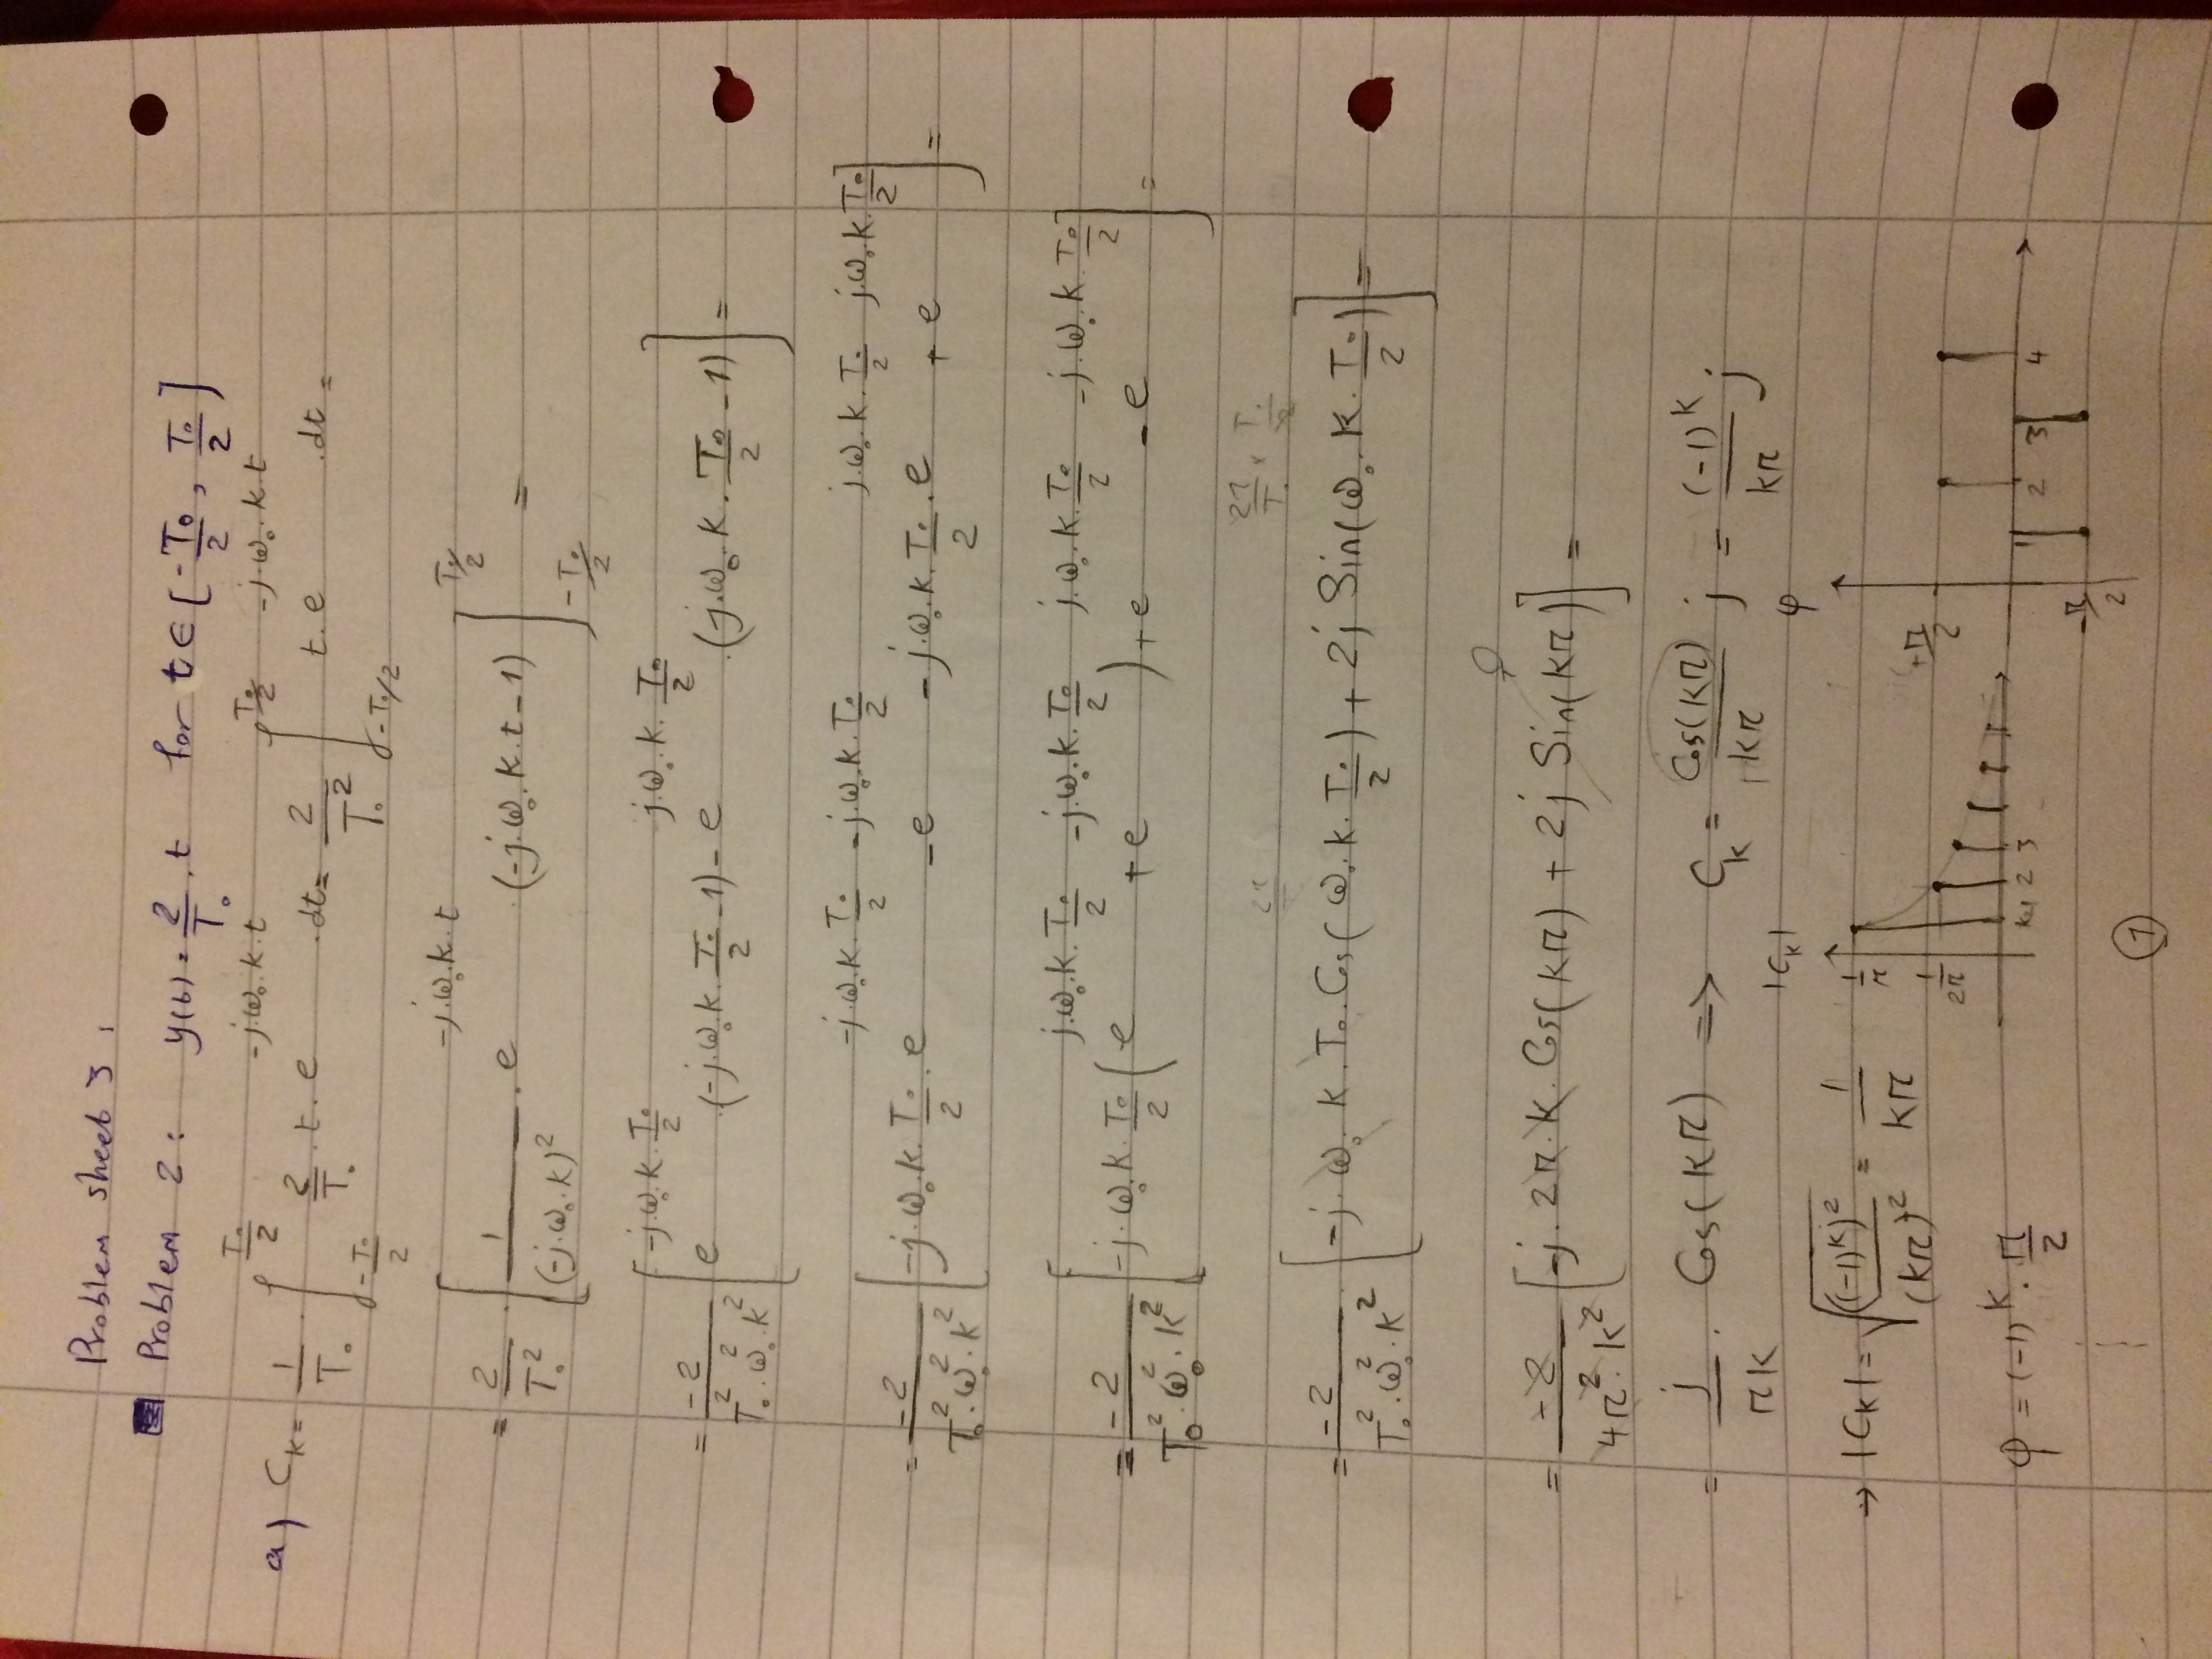 Problem sheet 3,
Problem 2: y(t) = 2/T₀ · t for t ∈ [-T₀/2, T₀/2]
a) C_K = 1/T₀ · ∫_{-T₀/2}^{T₀/2} 2/T₀ · t · e^{-j·ω₀·k·t} · dt = 2/T₀² ∫_{-T₀/2}^{T₀/2} t · e^{-j·ω₀·k·t} · dt =
= 2/T₀² · [1/(-j·ω₀·k)² · e^{-j·ω₀·k·t} · (-j·ω₀·k·t - 1)]_{-T₀/2}^{T₀/2} =
= -2/(T₀²·ω₀²·k²) [e^{-j·ω₀·k·T₀/2} · (-j·ω₀·k·T₀/2 - 1) - e^{j·ω₀·k·T₀/2} · (j·ω₀·k·T₀/2 - 1)] =
= -2/(T₀²·ω₀²·k²) [-j·ω₀·k·T₀/2 · e^{-j·ω₀·k·T₀/2} - e^{-j·ω₀·k·T₀/2} - j·ω₀·k·T₀/2 · e^{j·ω₀·k·T₀/2} + e^{j·ω₀·k·T₀/2}] =
= -2/(T₀²·ω₀²·k²) [-j·ω₀·k·T₀/2 (e^{j·ω₀·k·T₀/2} + e^{-j·ω₀·k·T₀/2}) + e^{j·ω₀·k·T₀/2} - e^{-j·ω₀·k·T₀/2}] =
2π 2π/T₀ × T₀/2
= -2/(T₀²·ω₀²·k²) · [-j·ω₀·k·T₀·Cos(ω₀·k·T₀/2) + 2j Sin(ω₀·k·T₀/2)] =
0
= -2/(4π²·k²) [-j·2π·k·Cos(kπ) + 2j Sin(kπ)] =
= j/(πk) · Cos(kπ) => C_k = Cos(kπ)/(kπ) j = (-1)^k/(kπ) j
→ |C_K| = √(((-1)^K)²/(kπ)²) = 1/(kπ)
|C_K|
1/π
1/2π
k=1 2 3
φ
+π/2
1 2 3 4
-π/2
φ = (-1)^K · π/2
1